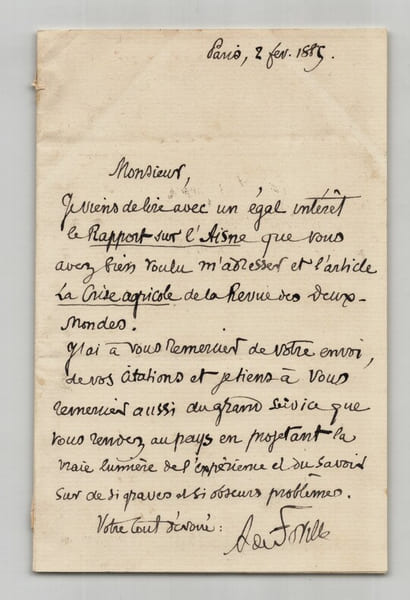 Paris, 2 fev. 1885.
Monsieur,
Je viens de lire avec un égal intérêt
le Rapport sur l'Aisne que vous
avez bien voulu m'adresser et l'article
La Crise agricole de la Revue des Deux-
Mondes.
J'ai à vous remercier de votre envoi,
de vos citations et je tiens à vous
remercier aussi du grand service que
vous rendez au pays en projetant la
vraie lumière de l'expérience et du savoir
sur de si graves et si obscurs problèmes.
Votre tout dévoué :
A de Foville